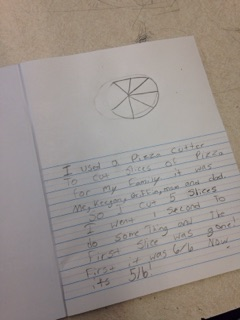 I used a Pizza cutter
To cut slices of Pizza
for my family it was
Me, Keegan, mom and dad.
so I cut 5 slices
I went 1 second to
do something and the
first slice was gone!
first it was 6/6 Now
its 5/6!